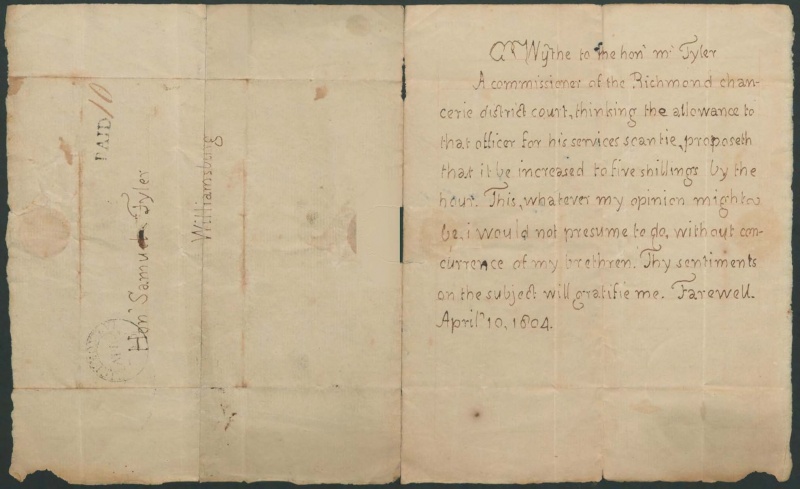 PAID 10
Honˡ Samuel Tyler
Williamsburg
G Wythe to the honˡ mʳ Tyler
A commissioner of the Richmond chan-
cerie district court, thinking the allowance to
that officer for his services scantie, proposeth
that it be increased to five shillings by the
hour. This, whatever my opinion might
be, i would not presume to do, without con-
currence of my brethren. Thy sentiments
on the subject will gratifie me. Farewell.
April 10, 1804.